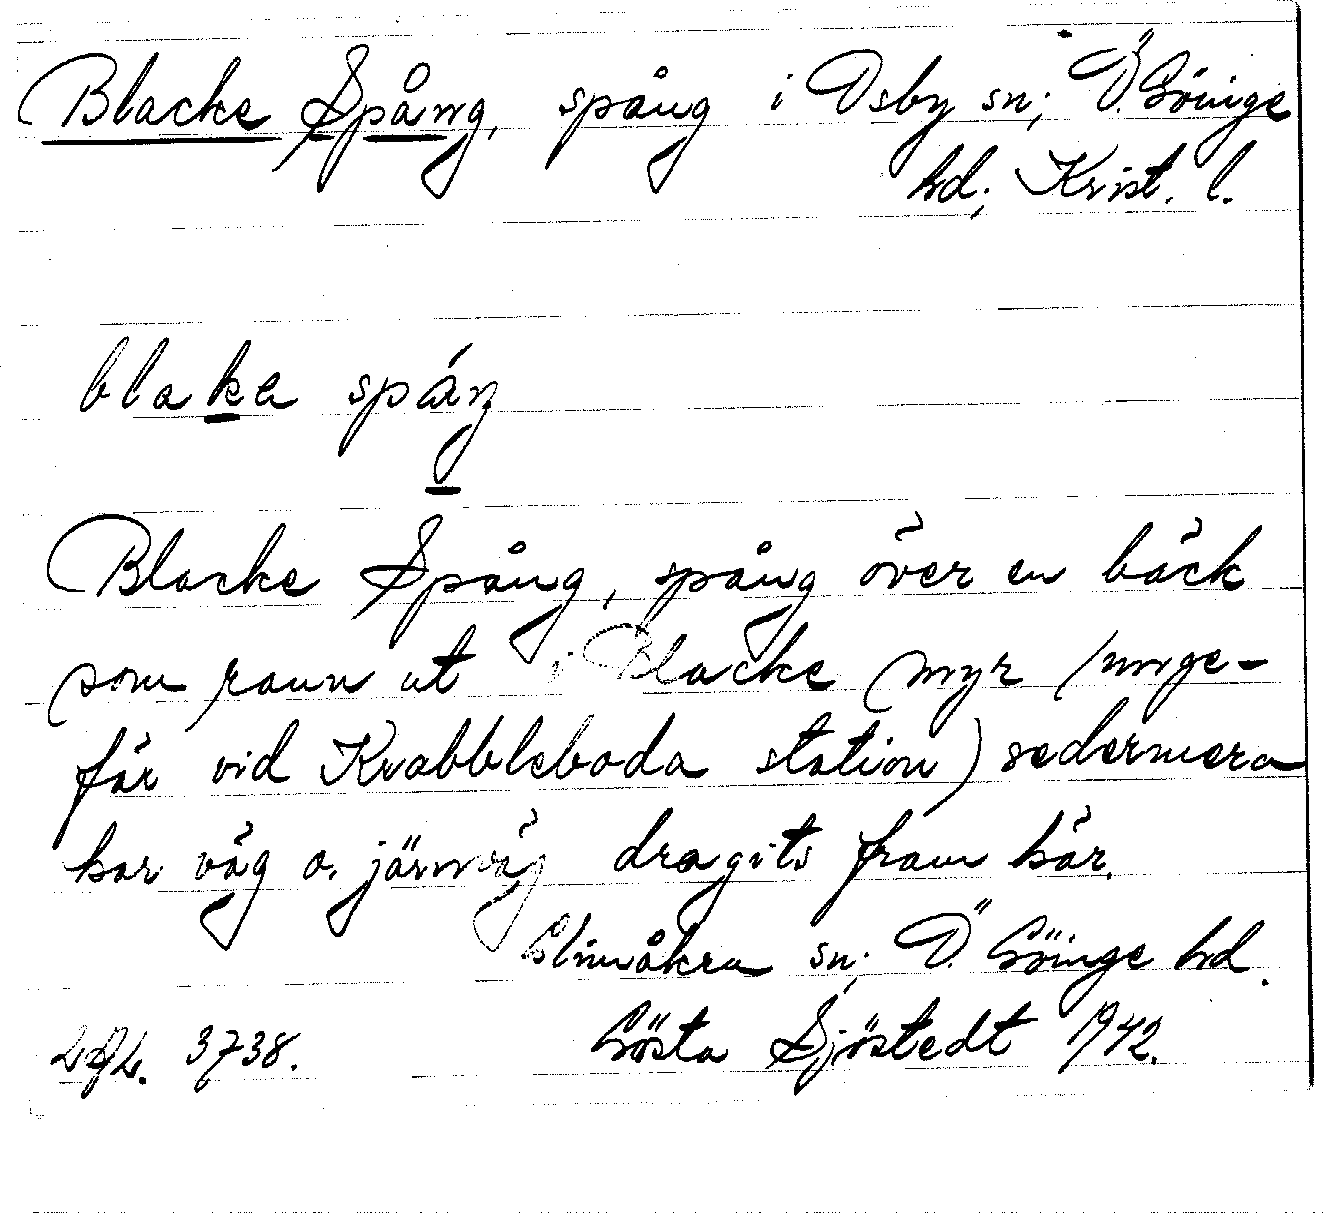 Blacke Spång, spång i Osby sn; Ö. Göinge
hd; Krist. l.
blake spáŋ
Blacke Spång, spång över en bäck
som rann ut i Blacke myr (unge-
fär vid Krabbleboda station) sedermera
har väg o. järnväg dragits fram här.
Glimåkra sn; Ö. Göinge hd.
LAL. 3738. Gösta Sjöstedt 1942.